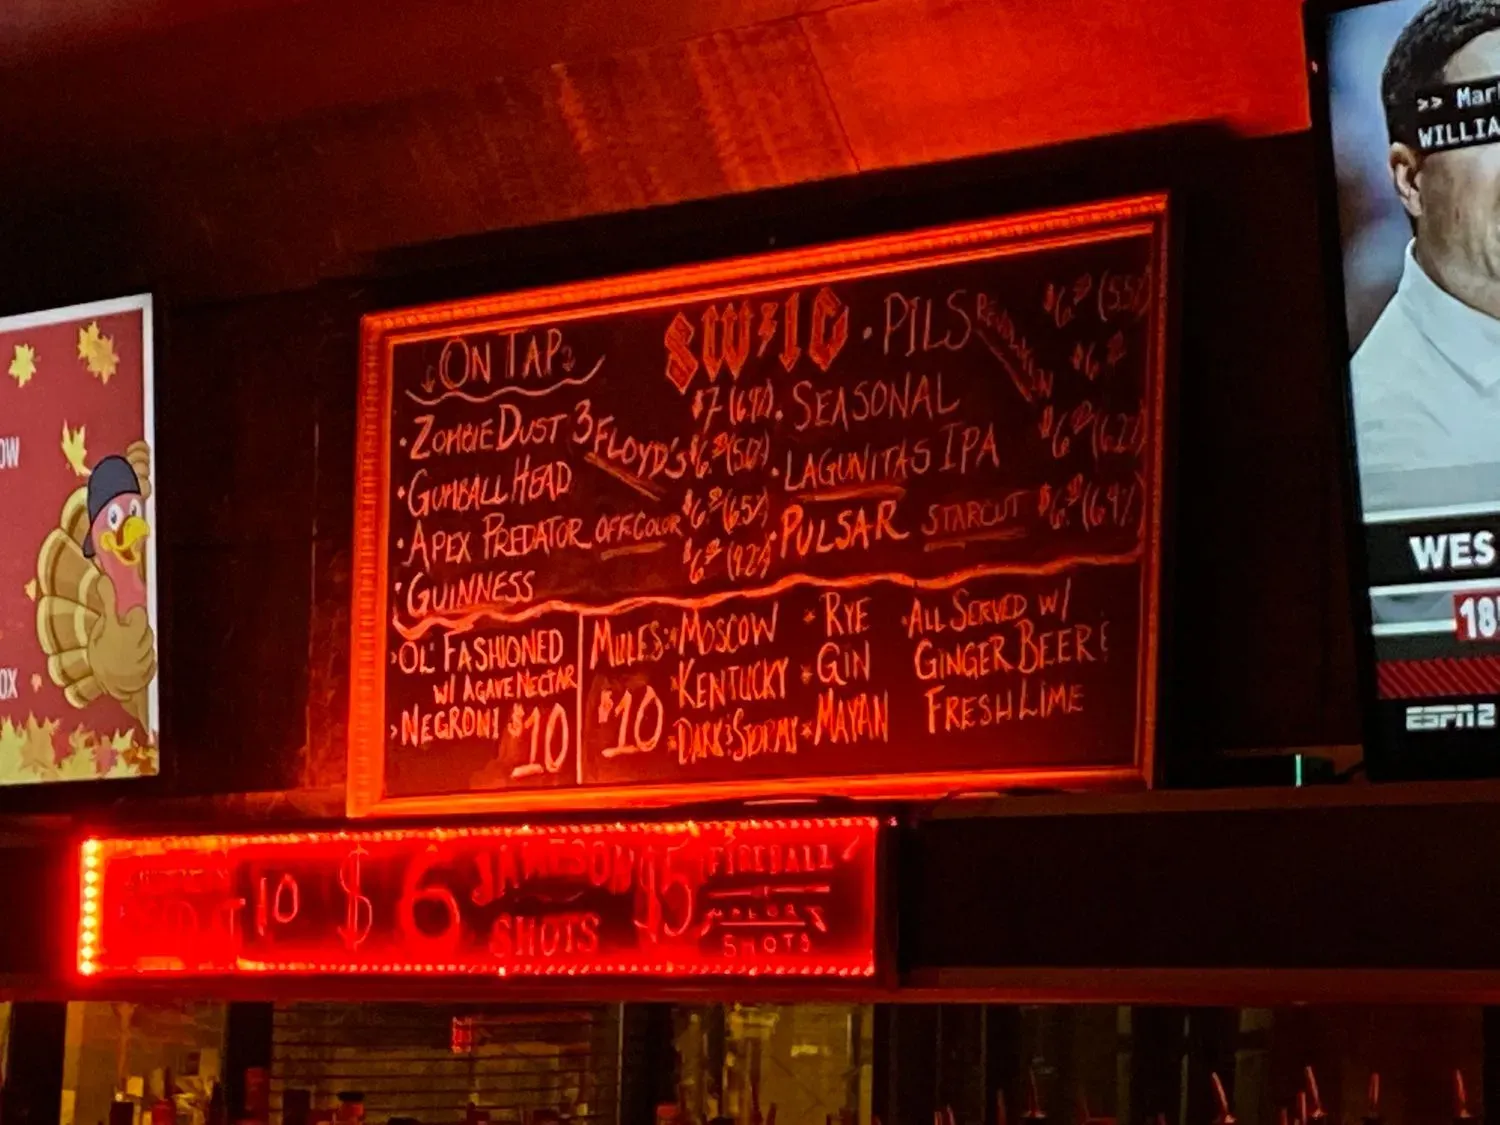 ON TAP
SW⚡IG
• ZOMBIE DUST 3 FLOYD'S $7
• GUMBALL HEAD $6.00 (5.0%)
• APEX PREDATOR OFF COLOR $6.00 (6.5%)
• GUINNESS $6.00 (4.2%)
• PILS REVOLUTION $6.00 (5.5%)
• SEASONAL $6
• LAGUNITAS IPA $6.00 (6.2%)
• PULSAR STARCUT $6.00 (6.9%)
OL' FASHIONED
W/ AGAVE NECTAR
NEGRONI $10
MULES: * MOSCOW
$10 * KENTUCKY
* DARK & STORMY
* RYE
* GIN
* MAYAN
• ALL SERVED W/
GINGER BEER &
FRESH LIME
$10
$6 JAMESON
SHOTS
$5 FIREBALL
MALORT
SHOTS
OW
OX
>> Mar
WILLIA
WES
18
ESPN2